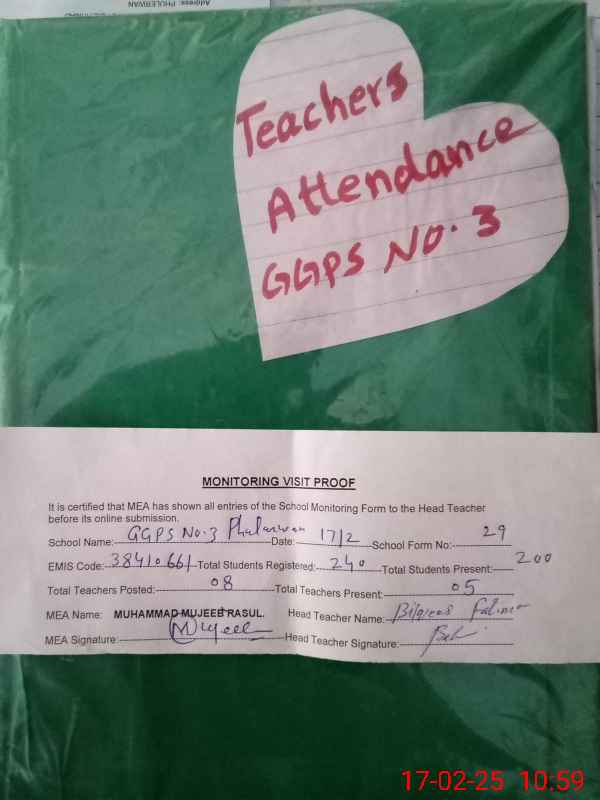 Address: PHULERWAN
Teachers
Attendance
GGPS No. 3
MONITORING VISIT PROOF
It is certified that MEA has shown all entries of the School Monitoring Form to the Head Teacher
before its online submission.
School Name: GGPS No.3 Phularwan Date: 17/2 School Form No: 29
EMIS Code: 38410661 Total Students Registered: 240 Total Students Present: 200
Total Teachers Posted: 08 Total Teachers Present: 05
MEA Name: MUHAMMAD MUJEEB RASUL. Head Teacher Name: Bilqees Fatima
MEA Signature: Mujeeb Head Teacher Signature:
17-02-25 10:59